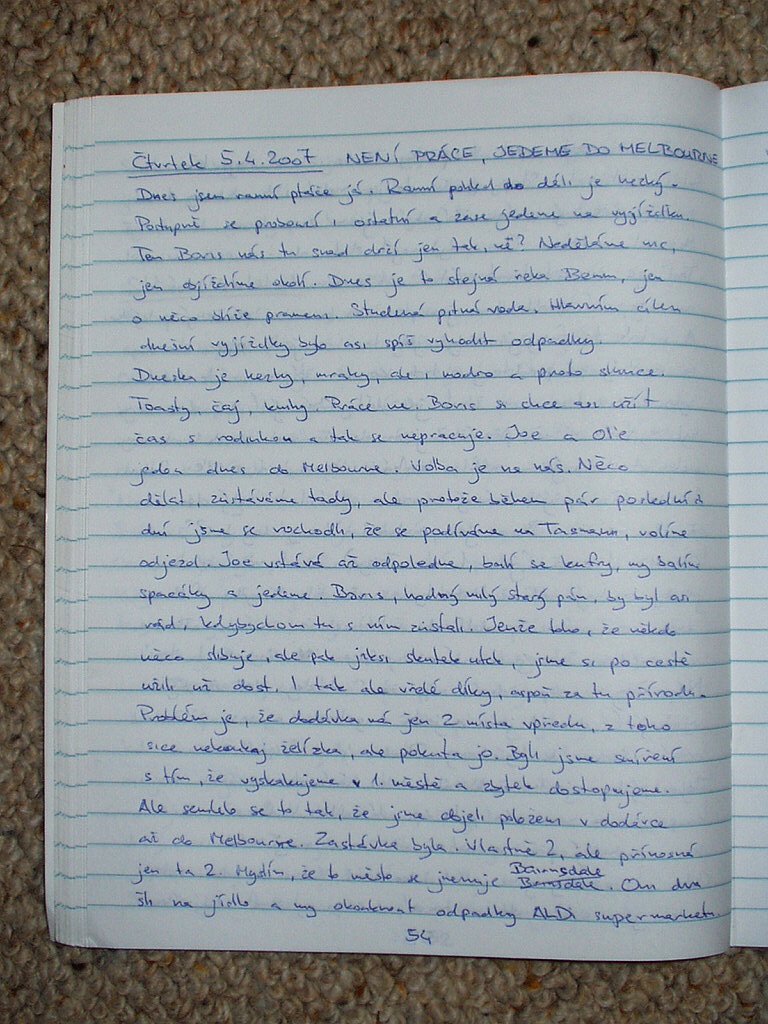 Čtvrtek 5.4.2007 NENÍ PRÁCE, JEDEME DO MELBOURNE
Dnes jsem ranní ptáče já. Ranní pohled do dáli je hezký.
Postupně se probouzí i ostatní a zase jedeme na vyjížďku.
Ten Boris nás tu snad drží jen tak, ně? Neděláme nic,
jen objíždíme okolí. Dnes je to stejná řeka Bemm, jen
o něco blíže prameni. Studená pitná voda. Hlavním cílem
dnešní vyjížďky bylo asi spíš vyhodit odpadky.
Dneska je hezky, mraky, ale i modro a proto slunce.
Toasty, čaj, knihy. Práce ne. Boris si chce asi užít
čas s rodinkou a tak se nepracuje. Joe a Ole
jedou dnes do Melbourne. Volba je na nás. Něco
dělat, zůstáváme tady, ale protože během pár posledních
dní jsme se rozhodli, že se podíváme na Tasmanii, volíme
odjezd. Joe vstává až odpoledne, balí se kufry, my balíme
spacáky a jedeme. Boris, hodný milý starý pán, by byl asi
rád, kdybychom tu s ním zůstali. Jenže toho, že někdo
něco slibuje, ale pak jaksi skutek utek, jsme si po cestě
užili už dost. I tak ale vřelé díky, aspoň za tu přírodu.
Problém je, že dodávka má jen 2 místa vpředu, z toho
sice nekoukaj želízka, ale pokuta jo. Byli jsme smíření
s tím, že vyskakujeme v 1. městě a zbytek dostopujeme.
Ale semlelo se to tak, že jsme dojeli položem v dodávce
až do Melbourne. Zastávka byla. Vlastně 2, ale přínosná
jen ta 2. Myslím, že to město se jmenuje Bairnsdale. Oni dva
šli na jídlo a my okouknout odpadky ALDI supermarketu.
54